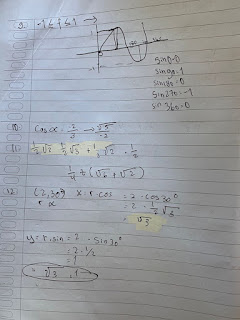 9. -1 ≤ ≤ 1
sin 0 = 0
sin 90 = 1
sin 180 = 0
sin 270 = -1
sin 360 = 0
10) Cos x =
11) ½√2 · ½√3 + ½√2 · ½
¼ (√6 + √2)
12. (2, 30°) x = r cos = 2 · cos 30°
r α = 2 · ½√3
= √3
y = r . sin = 2 · sin 30°
= 2 · 1/2
= 1
√3 , 1